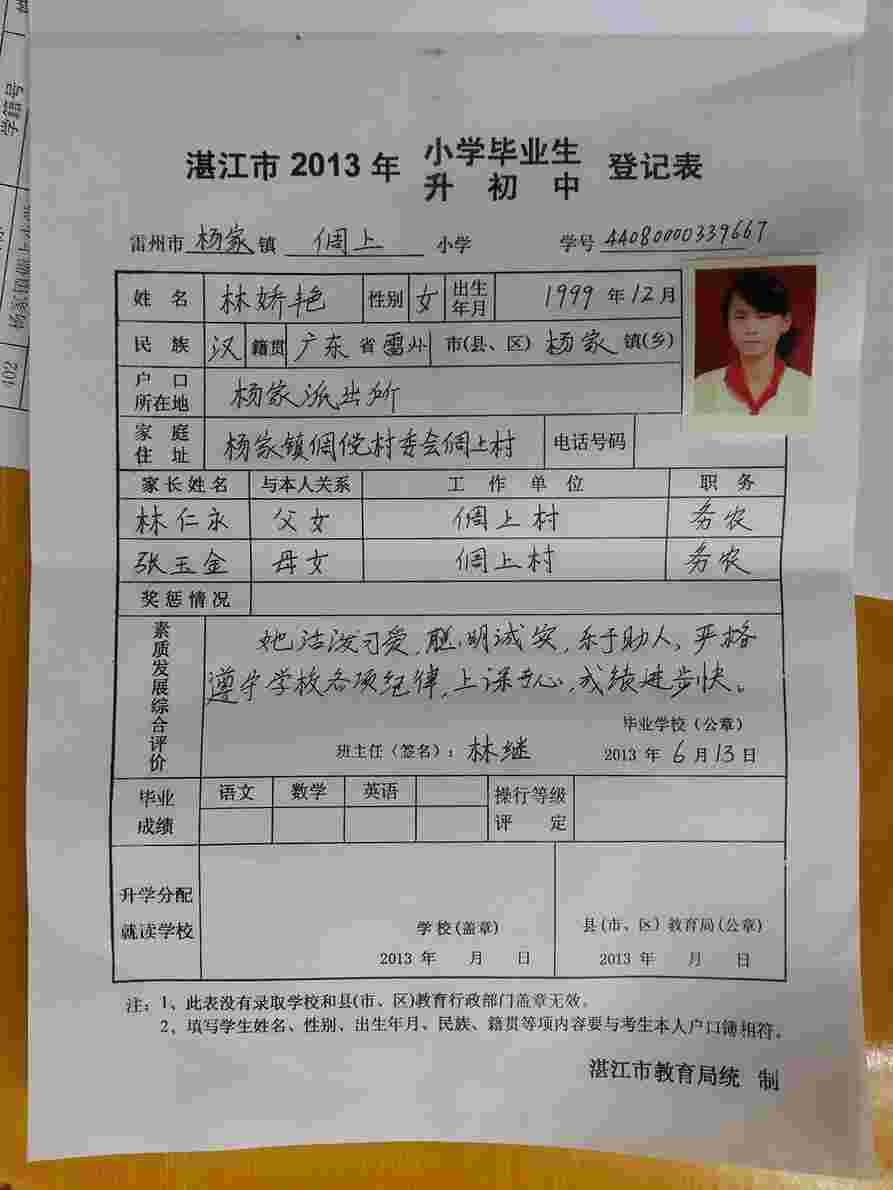 学籍号
402
湛江市 2013 年 小学毕业生 登记表
升 初 中
雷州市 杨家 镇 倜上 小学 学号 44080000339667
姓 名 林娇艳 性别 女 出生年月 1999 年 12 月
民 族 汉 籍贯 广东 省 雷州 市(县、区) 杨家 镇(乡)
户 口 所在地 杨家派出所
家 庭 住 址 杨家镇倜傥村委会倜上村 电话号码
家长姓名 与本人关系 工 作 单 位 职 务
林仁永 父女 倜上村 务农
张玉金 母女 倜上村 务农
奖惩情况
素质发展综合评价
她活泼可爱,聪明诚实,乐于助人,严格
遵守学校各项纪律,上课专心,成绩进步快。
毕业学校(公章)
班主任(签名): 林继 2013 年 6 月 13 日
毕业成绩 语文 数学 英语 操行等级评 定
升学分配
就读学校
学校(盖章) 县(市、区)教育局(公章)
2013 年 月 日 2013 年 月 日
注:1、此表没有录取学校和县(市、区)教育行政部门盖章无效。
2、填写学生姓名、性别、出生年月、民族、籍贯等项内容要与考生本人户口簿相符。
湛江市教育局统 制